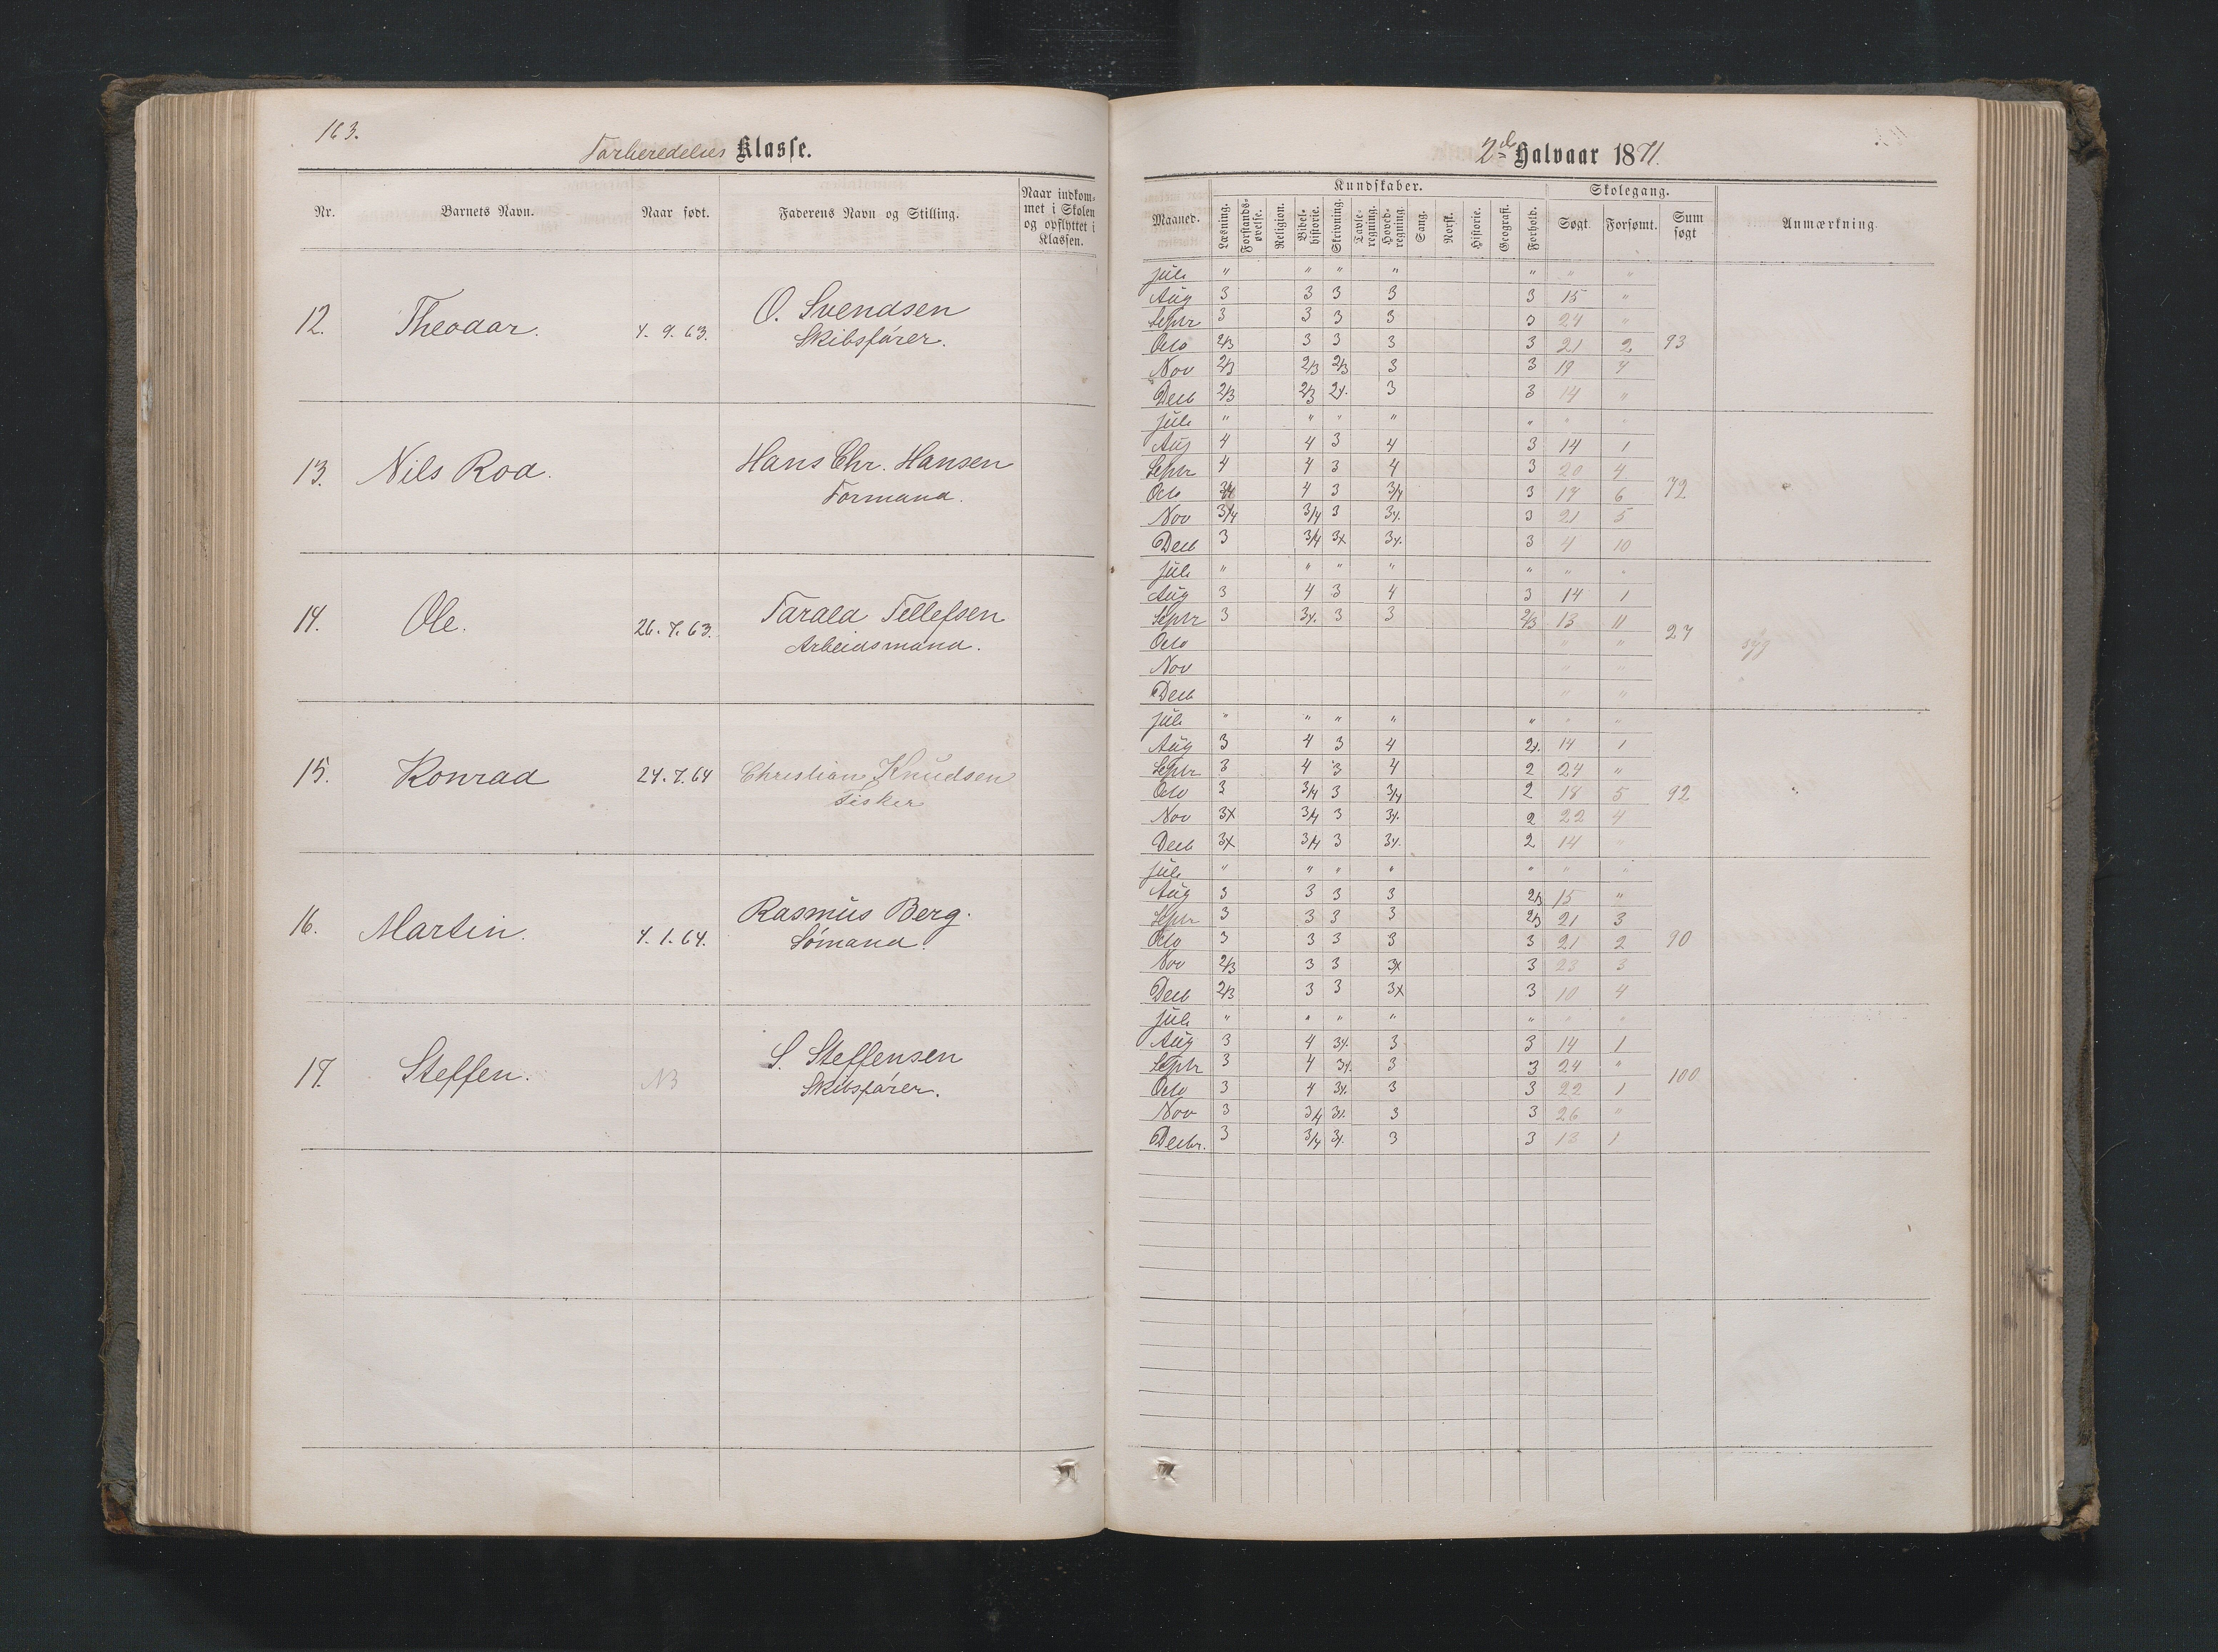 163.
Forberedelses Klasse.
Nr. Barnets Navn. Naar født. Faderens Navn og Stilling. Naar indkom-
met i Skolen
og opflyttet i
Klassen.
12. Theodor. 7. 9. 63. O. Svendsen
Skibsfører.
13. Nils Roa. Hans Chr. Hansen
Formand.
14. Ole. 26. 7. 63. Tarald Tellefsen
Arbeidsmand.
15. Konrad 24. 7. 64 Christian Knudsen
Fisker
16. Martin. 7. 1. 64. Rasmus Berg.
Sømand.
17. Steffen. NB S. Steffensen
Skibsfører.
2det Halvaar 1871.
Kundskaber. Skolegang.
Maaned. Læsning. Forstands-
øvelse. Religion. Bibel-
historie. Skrivning. Tavle-
regning. Hoved-
regning. Sang. Norsk. Historie. Geografi. Forhold. Søgt. Forsømt. Sum
søgt Anmærkning
Juli " " " " " " "
Aug 3 3 3 3 3 15 "
Septr 3 3 3 3 3 24 "
Octo 2/3 3 3 3 3 21 2 93
Nov 2/3 2/3 2/3 3 3 19 4
Decb 2/3 2/3 2x. 3 3 14 "
Juli " " " " " " "
Aug 4 4 3 4 3 14 1
Septr 4 4 3 4 3 20 4
Octo 3/4 4 3 3/4 3 17 6 72
Nov 3/4 3/4 3 3x. 3 21 5
Decb 3 3/4 3x 3x. 3 4 10
Juli " " " " " " "
Aug 3 4 3 4 3 14 1
Septr 3 3x. 3 3 2/3 13 11 27
Octo " "
Nov " " syg
Decb " "
Juli " " " " " " "
Aug 3 4 3 4 2x. 14 1
Septr 3 4 3 4 2 24 "
Octo 3 3/4 3 3/4 2 18 5 92
Nov 3x 3/4 3 3x. 2 22 4
Decb 3x 3/4 3 3x. 2 14 "
Juli " " " " " " "
Aug 3 3 3 3 2/3 15 "
Septr 3 3 3 3 2/3 21 3
Octo 3 3 3 3 3 21 2 90
Nov 2/3 3 3 3x 3 23 3
Decb 2/3 3 3 3x 3 10 4
Juli " " " " " " "
Aug 3 4 3x. 3 3 14 1
Septr 3 4 3x. 3 3 24 "
Octo 3 4 3x. 3 3 22 1 100
Nov 3 3/4 3x. 3 3 26 "
Decbr. 3 3/4 3x. 3 3 13 1